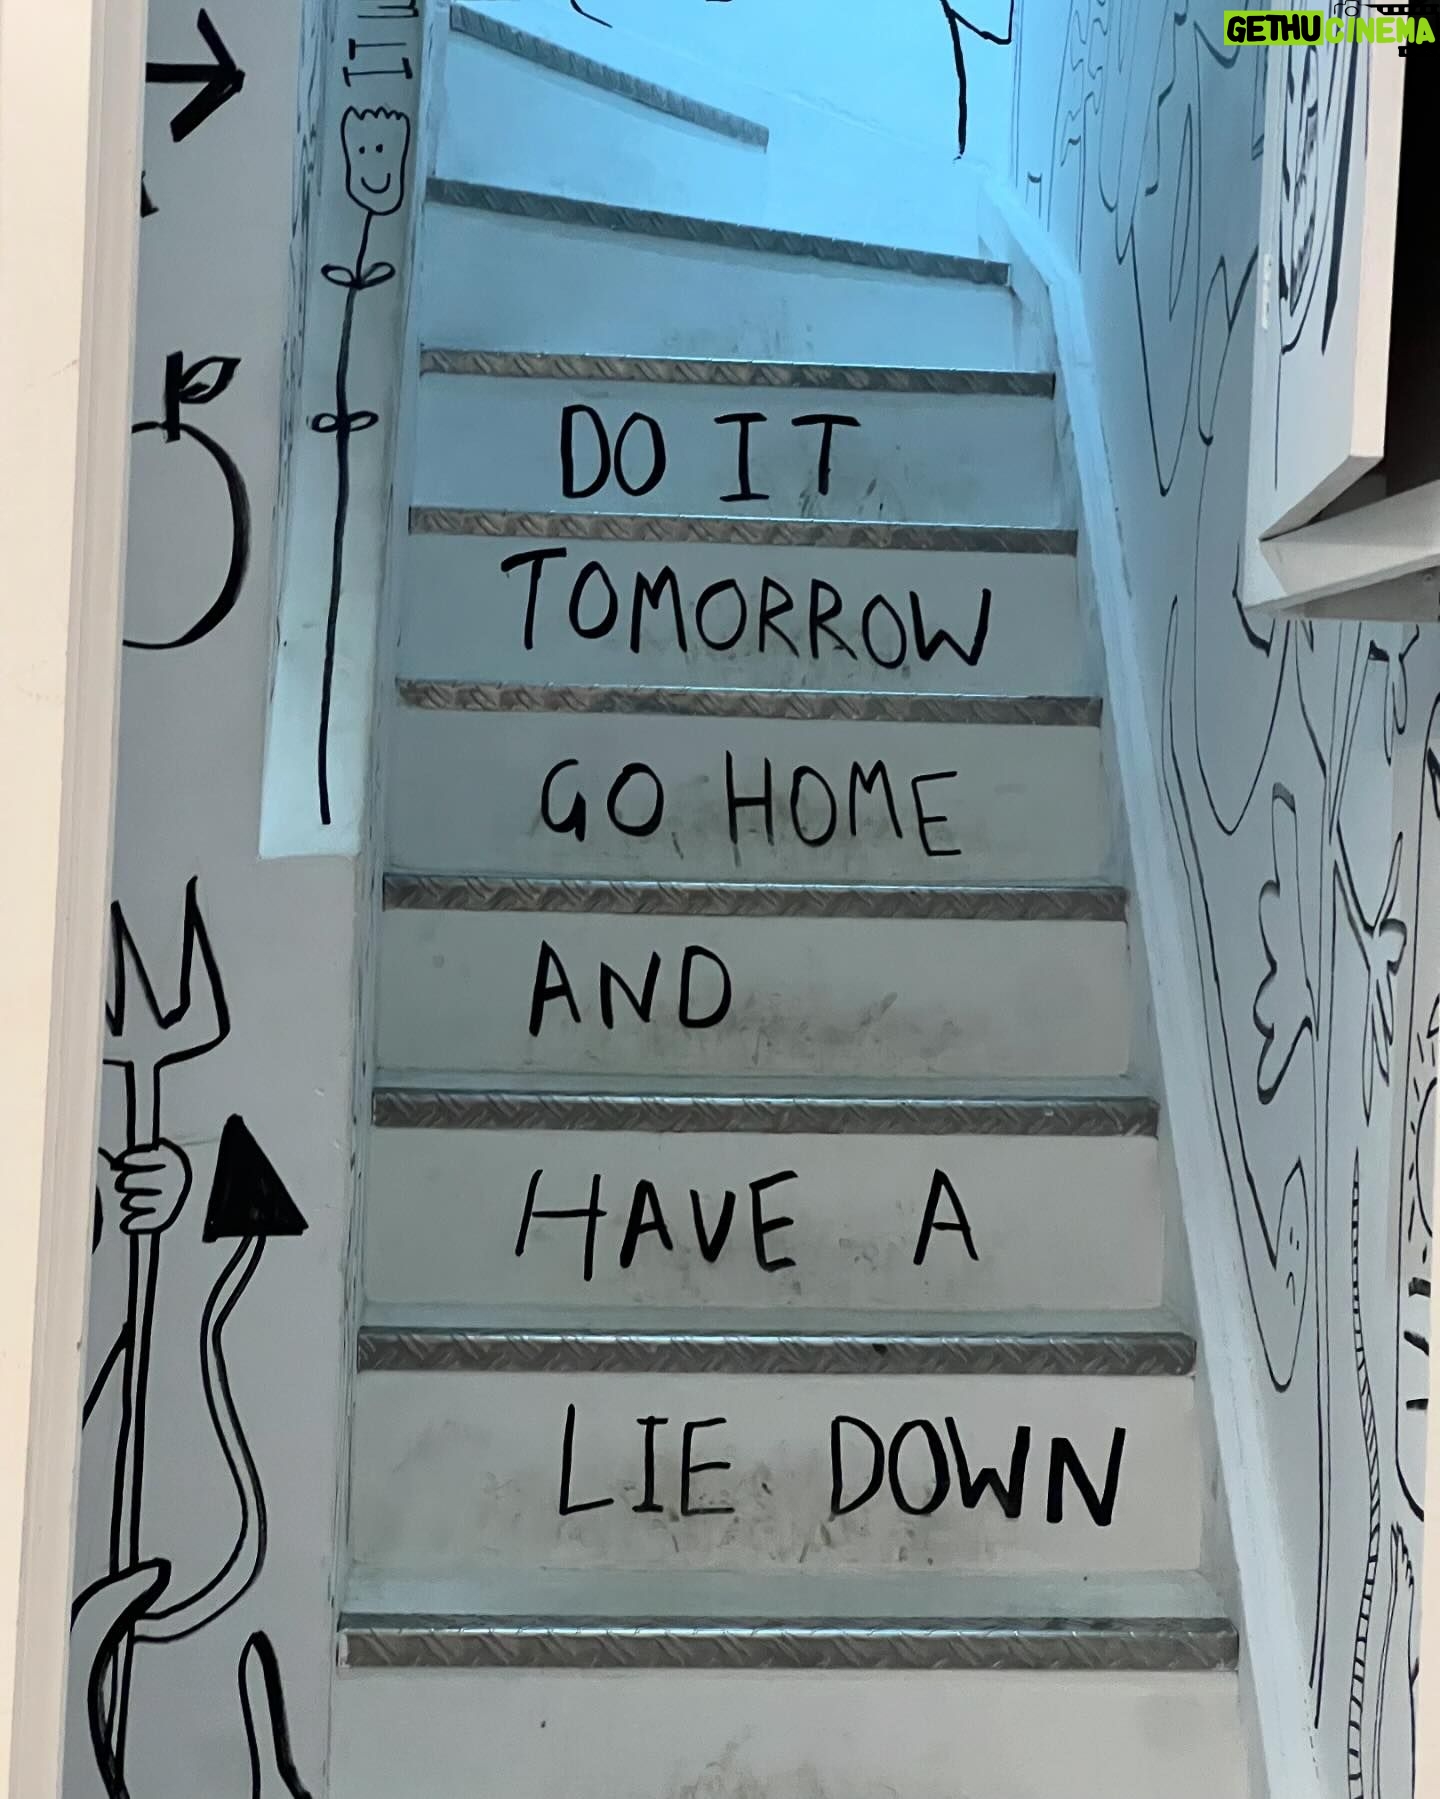 GETHUCINEMA
IT
DO IT
TOMORROW
GO HOME
AND
HAVE A
LIE DOWN